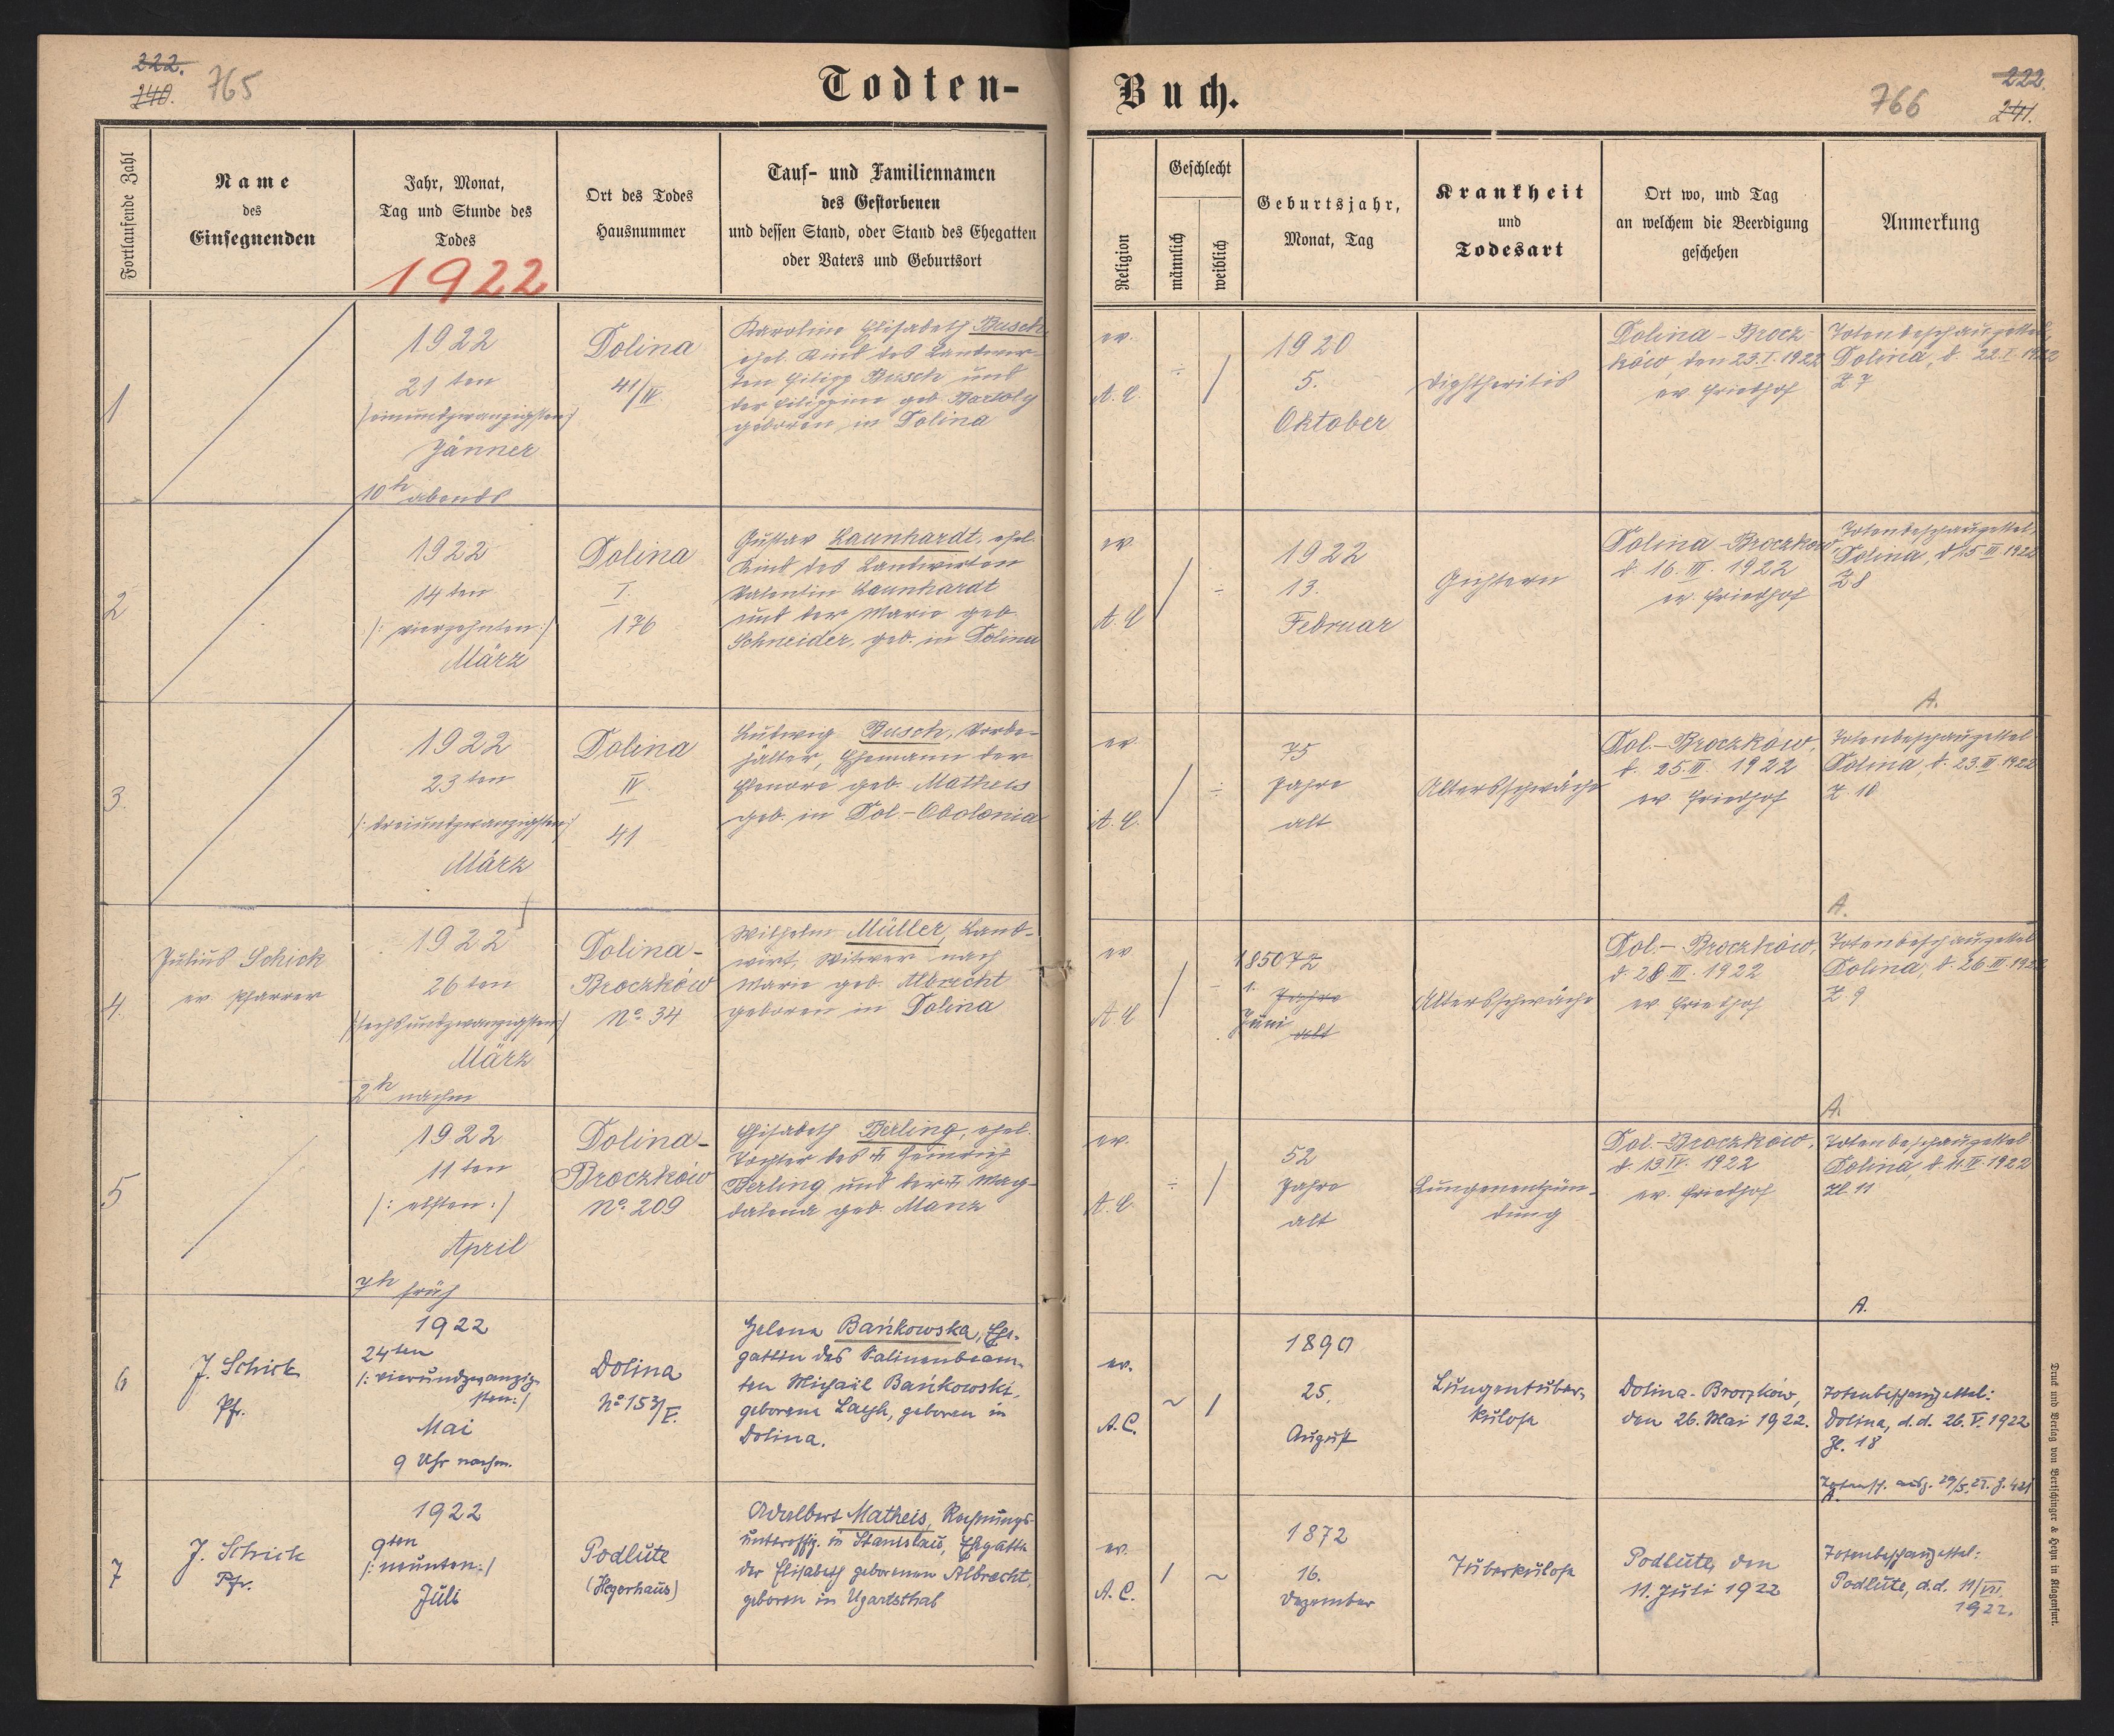 222.
240.
765
Todten-
Buch.
766
222.
241.
Fortlaufende Zahl
Name
des
Einsegnenden
Jahr, Monat,
Tag und Stunde des
Todes
1922
Ort des Todes
Hausnummer
Tauf- und Familiennamen
des Gestorbenen
und dessen Stand, oder Stand des Ehegatten
oder Vaters und Geburtsort
Religion
Geschlecht
männlich
weiblich
Geburtsjahr,
Monat, Tag
Krankheit
und
Todesart
Ort wo, und Tag
an welchem die Beerdigung
geschehen
Anmerkung
1
1922
21ten
/einundzwanzigsten:/
Jänner
10h abends
Dolina
41/IV.
Karoline Elisabeth Busch
ehel. Kind des Landwir-
ten Filipp Busch und
der Filippine geb. Bartoly
geboren in Dolina
ev.
A. C.
÷ /
1920
5.
Oktober
Diphtheritis
Dolina-Brocz-
ków, den 23.I.1922
ev. Friedhof
Totenbeschauzettel,
Dolina, d. 22.I.1922
Z 7
2
1922
14ten
/: vierzehnten:/
März
Dolina
I.
176
Gustav Launhardt, ehel.
Kind des Landwirten
Valentin Launhardt
und der Marie geb.
Schneider, geb. in Dolina
ev.
A. C
/ ÷
1922
13.
Februar
Gichtern
Dolina-Broczków
d. 16.III.1922
ev. Friedhof
Totenbeschauzettel,
Dolina, d 15.III.1922
Z 8
A.
3.
1922
23ten
/: dreiundzwanzigsten:/
März
Dolina
IV.
41
Ludwig Busch, Vorbe-
hälter, Ehemann der
Elenore geb. Matheis
geb. in Dol.-Obolonia
ev.
A. C.
/ ÷
75
Jahre
alt
Altersschwäche
Dol.-Broczków,
d. 25.III. 1922
ev. Friedhof
Totenbeschauzettel
Dolina, d. 23.III.1922
Z. 10
A.
4.
Julius Schick
ev. Pfarrer
1922
26ten
/sechsundzwanzigsten:/
März
2h nachm
Dolina-
Broczków
No. 34
Wilhelm Müller, Land-
wirt, Witwer nach
Marie geb. Albrecht
geboren in Dolina
ev
A C
/ ÷
1850 72
1. Jahre
Juni alt
Altersschwäche
Dol.-Broczków,
d. 28 III. 1922
ev Friedhof
Totenbeschauzettel
Dolina, d. 26.III.1922
Z. 9
A.
5
1922
11ten
/: elften:/
April
7h früh
Dolina-
Broczków
No. 209
Elisabeth Berling, ehel.
Tochter des † Heinrich
Berling und der † Mag-
dalena geb. Manz
ev.
A. C.
÷ /
52
Jahre
alt
Lungenentzün-
dung
Dol.-Broczków,
d. 13.IV. 1922
ev. Friedhof
Totenbeschauzettel
Dolina, d. 11.IV.1922
Zl. 11
A.
6
J. Schick
Pfr.
1922
24ten
/: vierundzwanzig-
sten:/
Mai
9 Uhr nachm.
Dolina
No 153/V.
Helena Bańkowska, Ehe-
gattin des Salinenbeam-
ten Michael Bańkowski,
geborene Lasch, geboren in
Dolina.
ev.
A.C.
~ /
1890
25.
August
Lungentuber-
kulose
Dolina-Broczków,
den 26. Mai 1922.
Totenbeschauzettel:
Dolina, d.d. 26.V.1922
Zl. 18
A.
7
J. Schick
Pfr.
1922
9ten
/: neunten:/
Juli
Podlute
(Hegerhaus)
Adalbert Matheis, Rechnungs-
unteroffiz. in Stanislau, Ehegatte
der Elisabeth geborenen Albrecht,
geboren in Ugartsthal
ev.
A.C.
/ ~
1872
16.
Dezember
Tuberkulose
Podlute, den
11. Juli 1922
Totenbeschauzettel:
Podlute, d.d. 11/VII
1922.
Druck und Verlag von Bertschinger & Heyn in Klagenfurt.